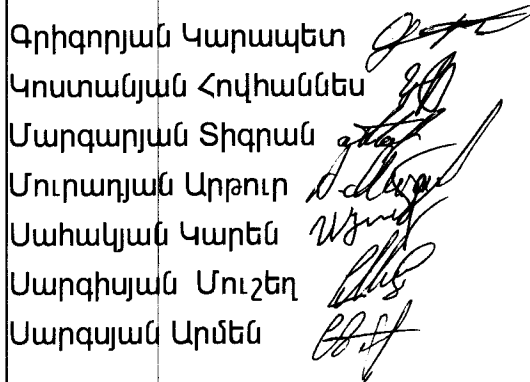 Գրիգորյան Կարապետ
Կոստանյան Հովհաննես
Մարգարյան Տիգրան
Մուրադյան Արթուր
Սահակյան Կարեն
Սարգիսյան Մուշեղ
Սարգսյան Արմեն